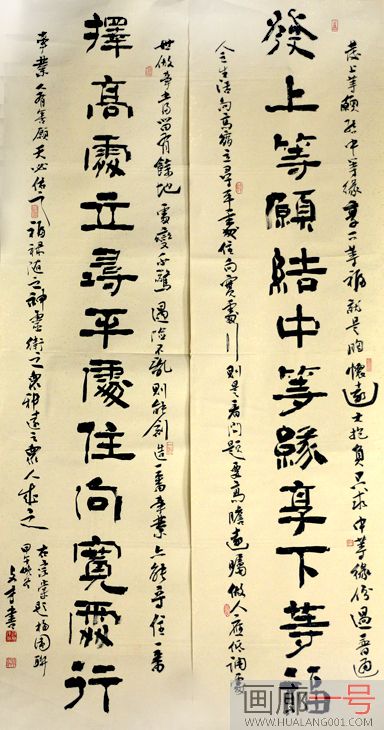 發上等願結中等緣享下等福
擇高處立尋平處住向寬處行
發上等願結中等緣享下等福就是胸懷遠大抱負只求中等緣份過普通
人生活向高處立尋平處住向寬處行則是看問題要高瞻遠矚做人應低調處
世做事當留有餘地處變不驚遇險不亂則能創造一番事業
事業人有善願天必佑之福祿隨之神靈衛之眾神遠之眾人成之
左宗棠題梅園聯
甲午
書
画廊一号
WWW.HUALANG001.COM